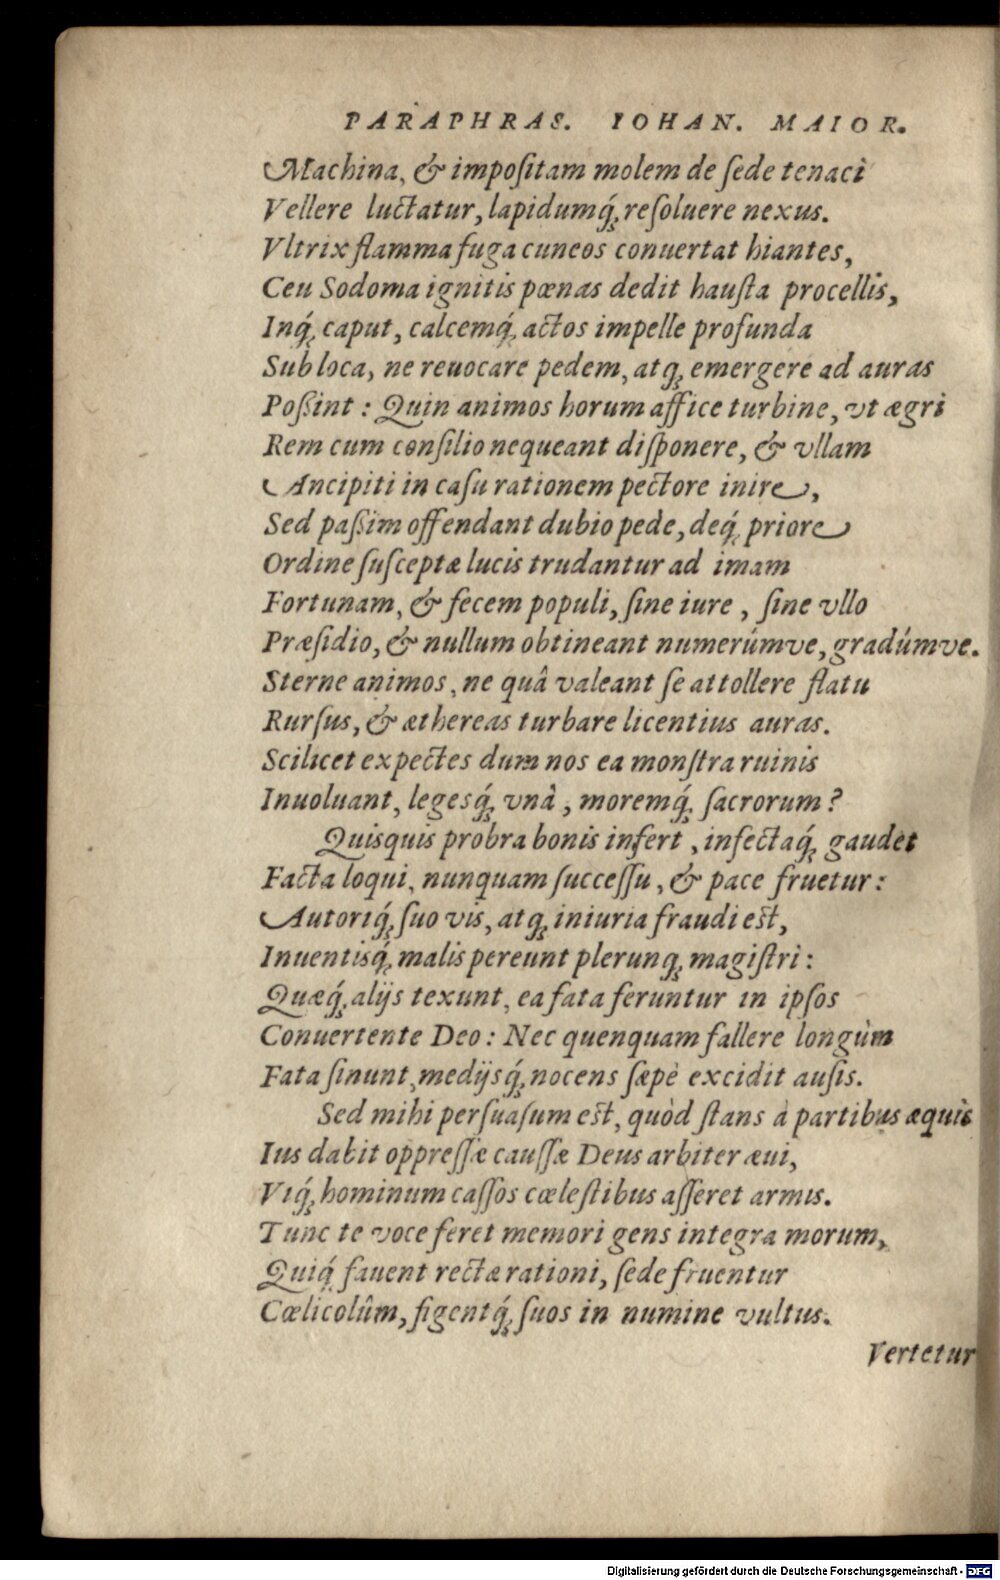 PARAPHRAS. IOHAN. MAIOR.
Machina, & impoſitam molem de ſede tenaci
Vellere luctatur, lapidumq́ꝫ reſoluere nexus.
Vltrix flamma fuga cuneos conuertat hiantes,
Ceu Sodoma ignitis pœnas dedit hauſta procellis,
Inq́ꝫ caput, calcemq́ꝫ actos impelle profunda
Sub loca, ne reuocare pedem, atqꝫ emergere ad auras
Poßint: Quin animos horum affice turbine, vt ægri
Rem cum conſilio nequeant diſponere, & vllam
Ancipiti in caſu rationem pectore inire,
Sed paßim offendant dubio pede, deq́ꝫ priore
Ordine ſuſceptæ lucis trudantur ad imam
Fortunam, & fecem populi, ſine iure, ſine vllo
Præſidio, & nullum obtineant numerúmve, gradúmve.
Sterne animos, ne quâ valeant ſe attollere flatu
Rurſus, & æthereas turbare licentius auras.
Scilicet expectes dum nos ea monſtra ruinis
Inuoluant, legesq́ꝫ vnà, moremq́ꝫ ſacrorum?
Quisquis probra bonis infert, infectaq́ꝫ gaudet
Facta loqui, nunquam ſucceſſu, & pace fruetur:
Autoriq́ꝫ ſuo vis, atqꝫ iniuria fraudi eſt,
Inuentisq́ꝫ malis pereunt plerunqꝫ magiſtri:
Quæq́ꝫ alijs texunt, ea fata feruntur in ipſos
Conuertente Deo: Nec quenquam fallere longùm
Fata ſinunt, medijsq́ꝫ nocens ſæpè excidit auſis.
Sed mihi perſuaſum eſt, quòd ſtans à partibus æquis
Ius dabit oppreſſæ cauſſæ Deus arbiter æui,
Viq́ꝫ hominum caſſos cœleſtibus aſſeret armis.
Tunc te voce feret memori gens integra morum,
Quiq́ꝫ fauent rectæ rationi, ſede fruentur
Cœlicolûm, figentq́ꝫ ſuos in numine vultus.
Vertetur
Digitalisierung gefördert durch die Deutsche Forschungsgemeinschaft - DFG